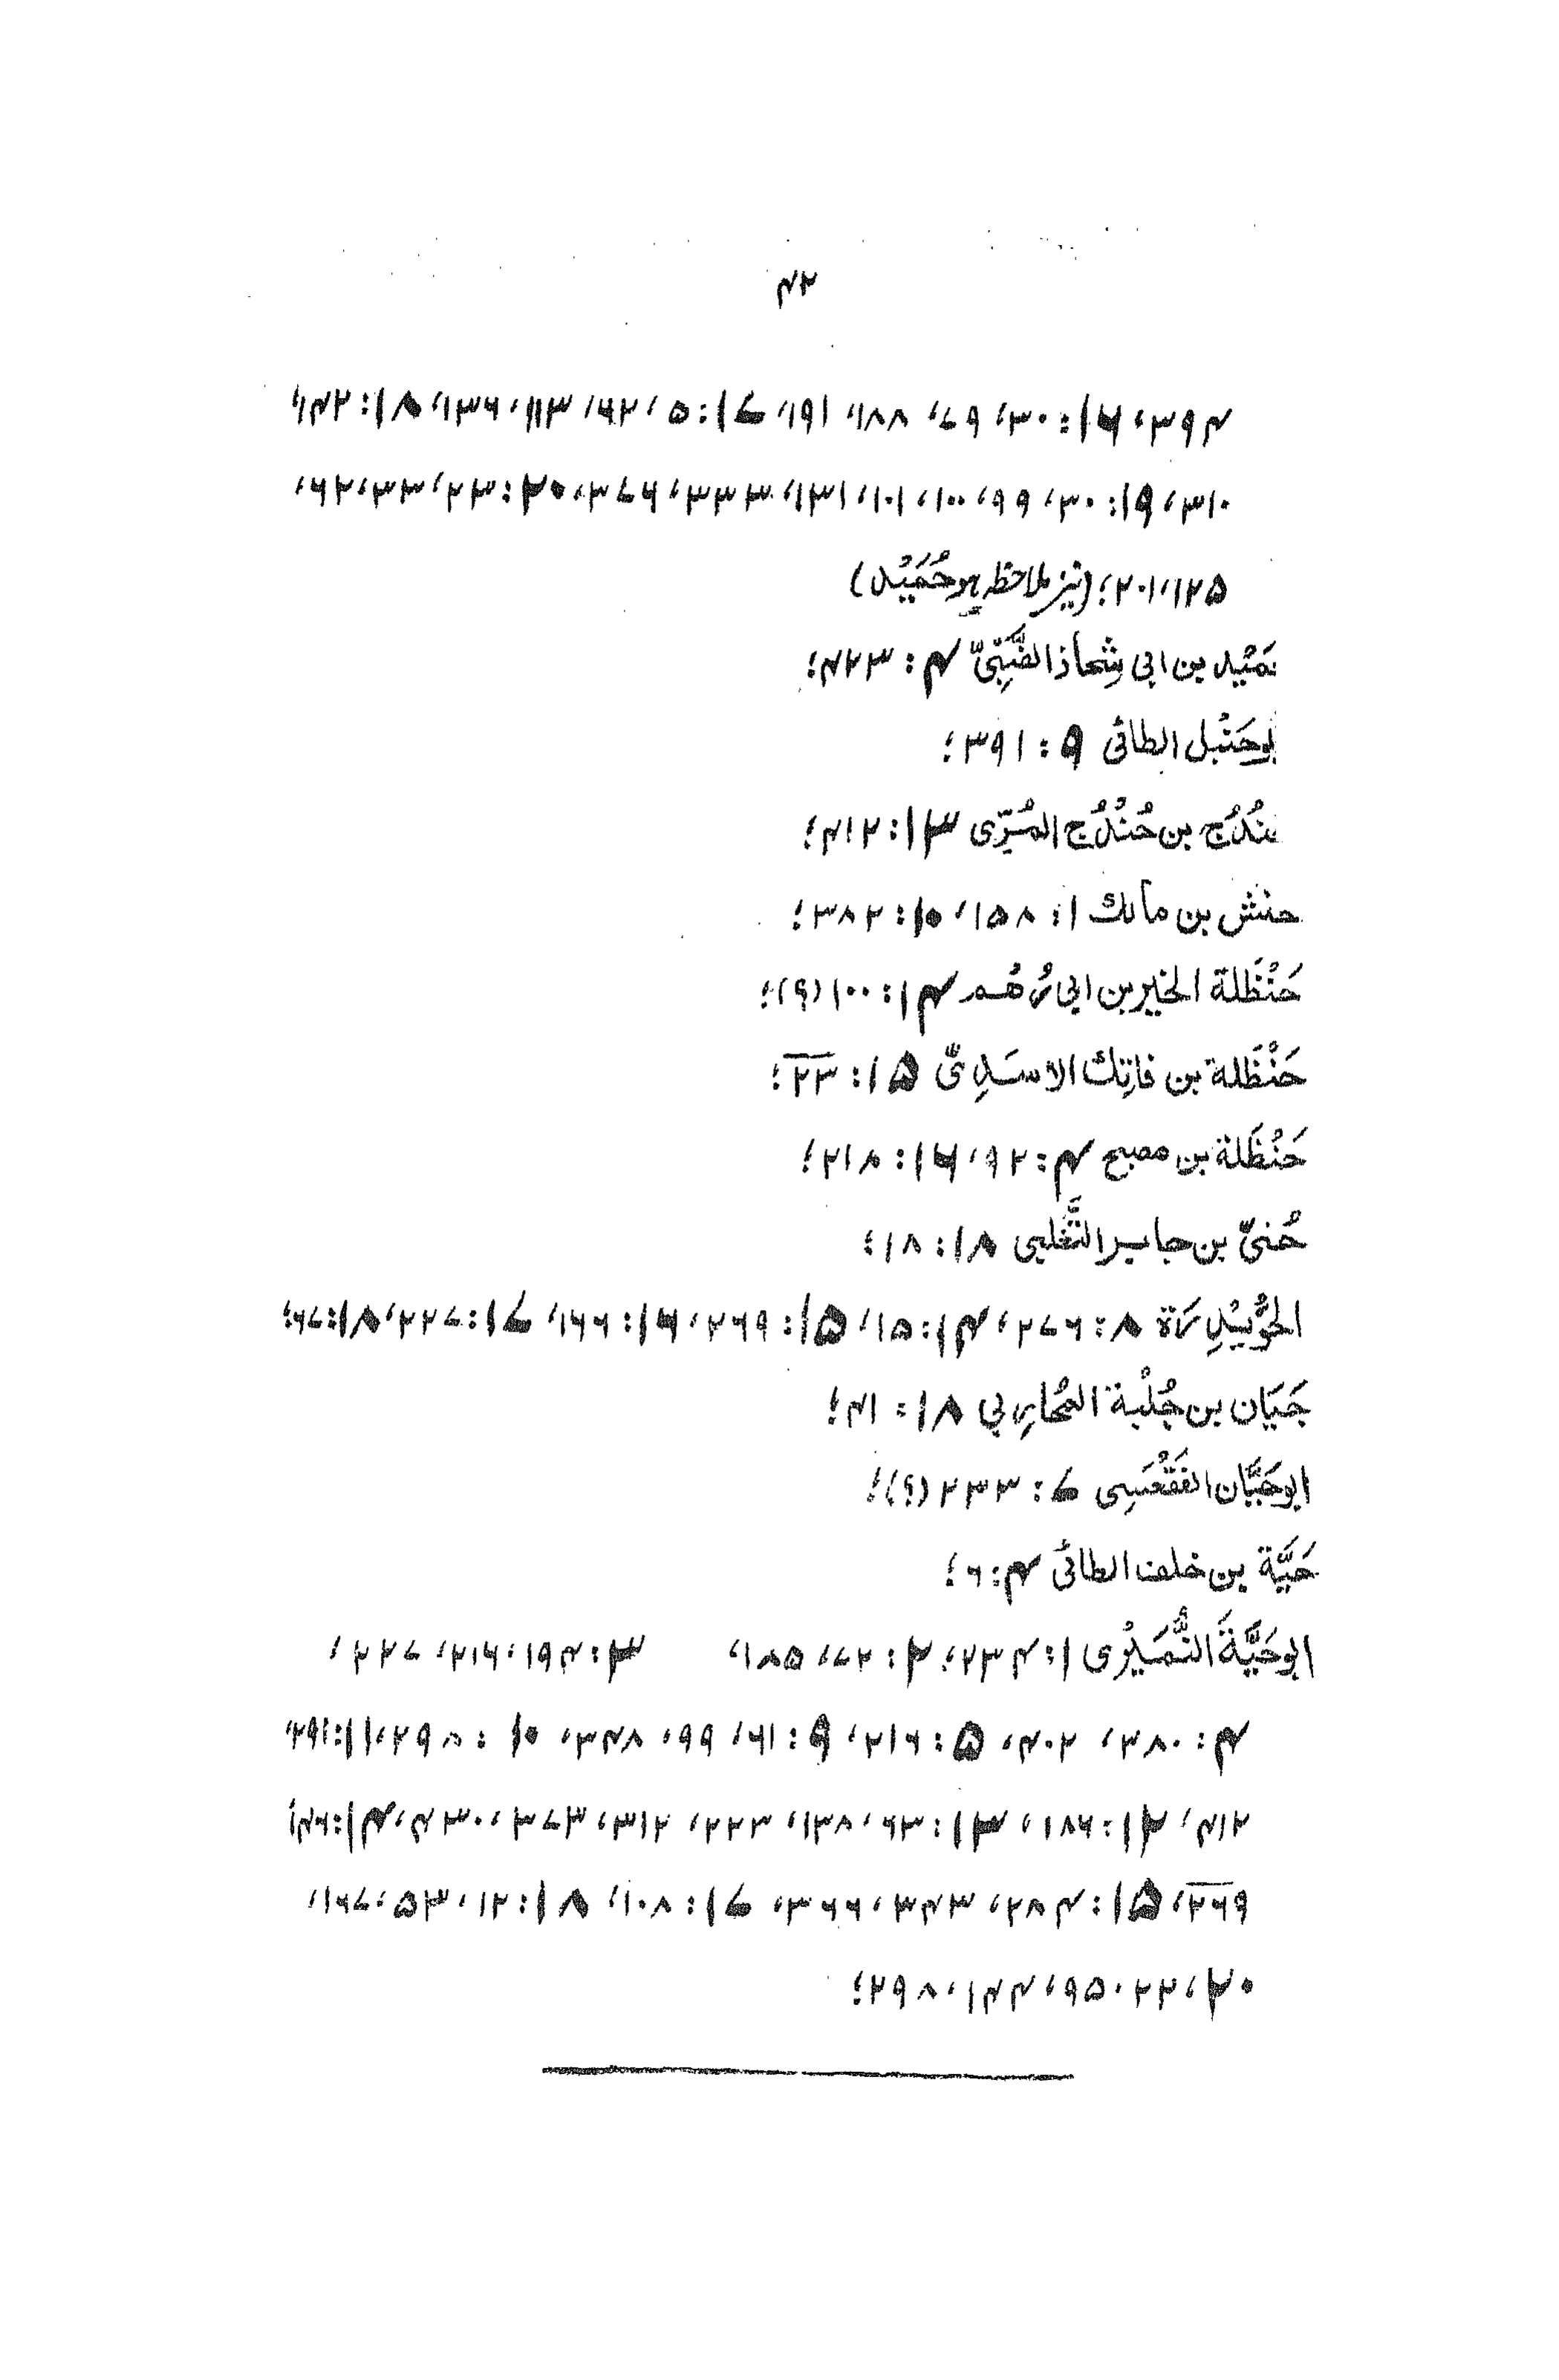 ۴۲
۳۹۴، ۱۶: ۳۰، ۷۹، ۱۸۸، ۱۹۱، ۱۷: ۵، ۶۲، ۱۱۳، ۱۳۶، ۱۸: ۱۴۲،
۳۱۰، ۱۹: ۳۰، ۹۹، ۱۰۰، ۱۰۱، ۱۳۱، ۳۳۳، ۳۷۶، ۲۰: ۲۳، ۳۳، ۶۲،
۱۲۵، ۲۰۱؛ (نیز ملاحظہ ہو حُمَیْد)
حُمَیْد بن ابی شِحاذ الضَّبِّیّ ۴: ۴۲۳؛
ابوحَنْبل الطائی ۹: ۳۹۱؛
حُنْدُج بن حُنْدُج المُرِّی ۱۳: ۴۱۲؛
حنش بن مالك ۱: ۱۵۸، ۱۰: ۳۸۲؛
حَنْظَلة الخیر بن ابی رُهُم ۱۴: ۱۰۰ (؟)؛
حَنْظَلة بن فاتِك الاسَدِیّ ۱۵: ۲۳؛
حَنْظَلة بن مصبح ۴: ۹۲، ۱۶: ۲۱۸؛
حُنیّ بن جابر التَّغلبی ۱۸: ۱۸؛
الحُوَیْدِرَة ۸: ۲۷۶، ۱۴: ۱۵، ۱۵: ۲۶۹، ۱۶: ۱۶۶، ۱۷: ۲۲۷، ۱۸: ۶۷؛
حَیَان بن جُلْبة المُحارِبی ۱۸: ۴۱؛
ابوحَیَّان الفَقْعَسِی ۷: ۲۳۳ (؟)؛
حَیَّة بن خلف الطائی ۴: ۶؛
ابوحَیَّةَ النُّمَیْرُی ۱: ۲۳۴، ۲: ۷۲، ۱۸۵، ۳: ۱۹۴، ۲۱۶، ۲۲۷،
۴: ۲۸۰، ۴۰۲، ۵: ۲۱۶، ۹: ۶۱، ۹۹، ۳۴۸، ۱۰: ۲۹۸، ۱۱: ۲۹۱،
۴۱۲، ۱۲: ۱۸۶، ۱۳: ۶۳، ۱۳۸، ۲۲۳، ۳۱۲، ۳۷۳، ۴۳۰، ۱۴:
۲۶۹، ۱۵: ۲۸۴، ۳۴۳، ۳۶۶، ۱۷: ۱۰۸، ۱۸: ۱۲، ۵۳، ۱۶۷،
۲۰، ۲۲، ۹۵، ۱۴۴، ۲۹۸؛